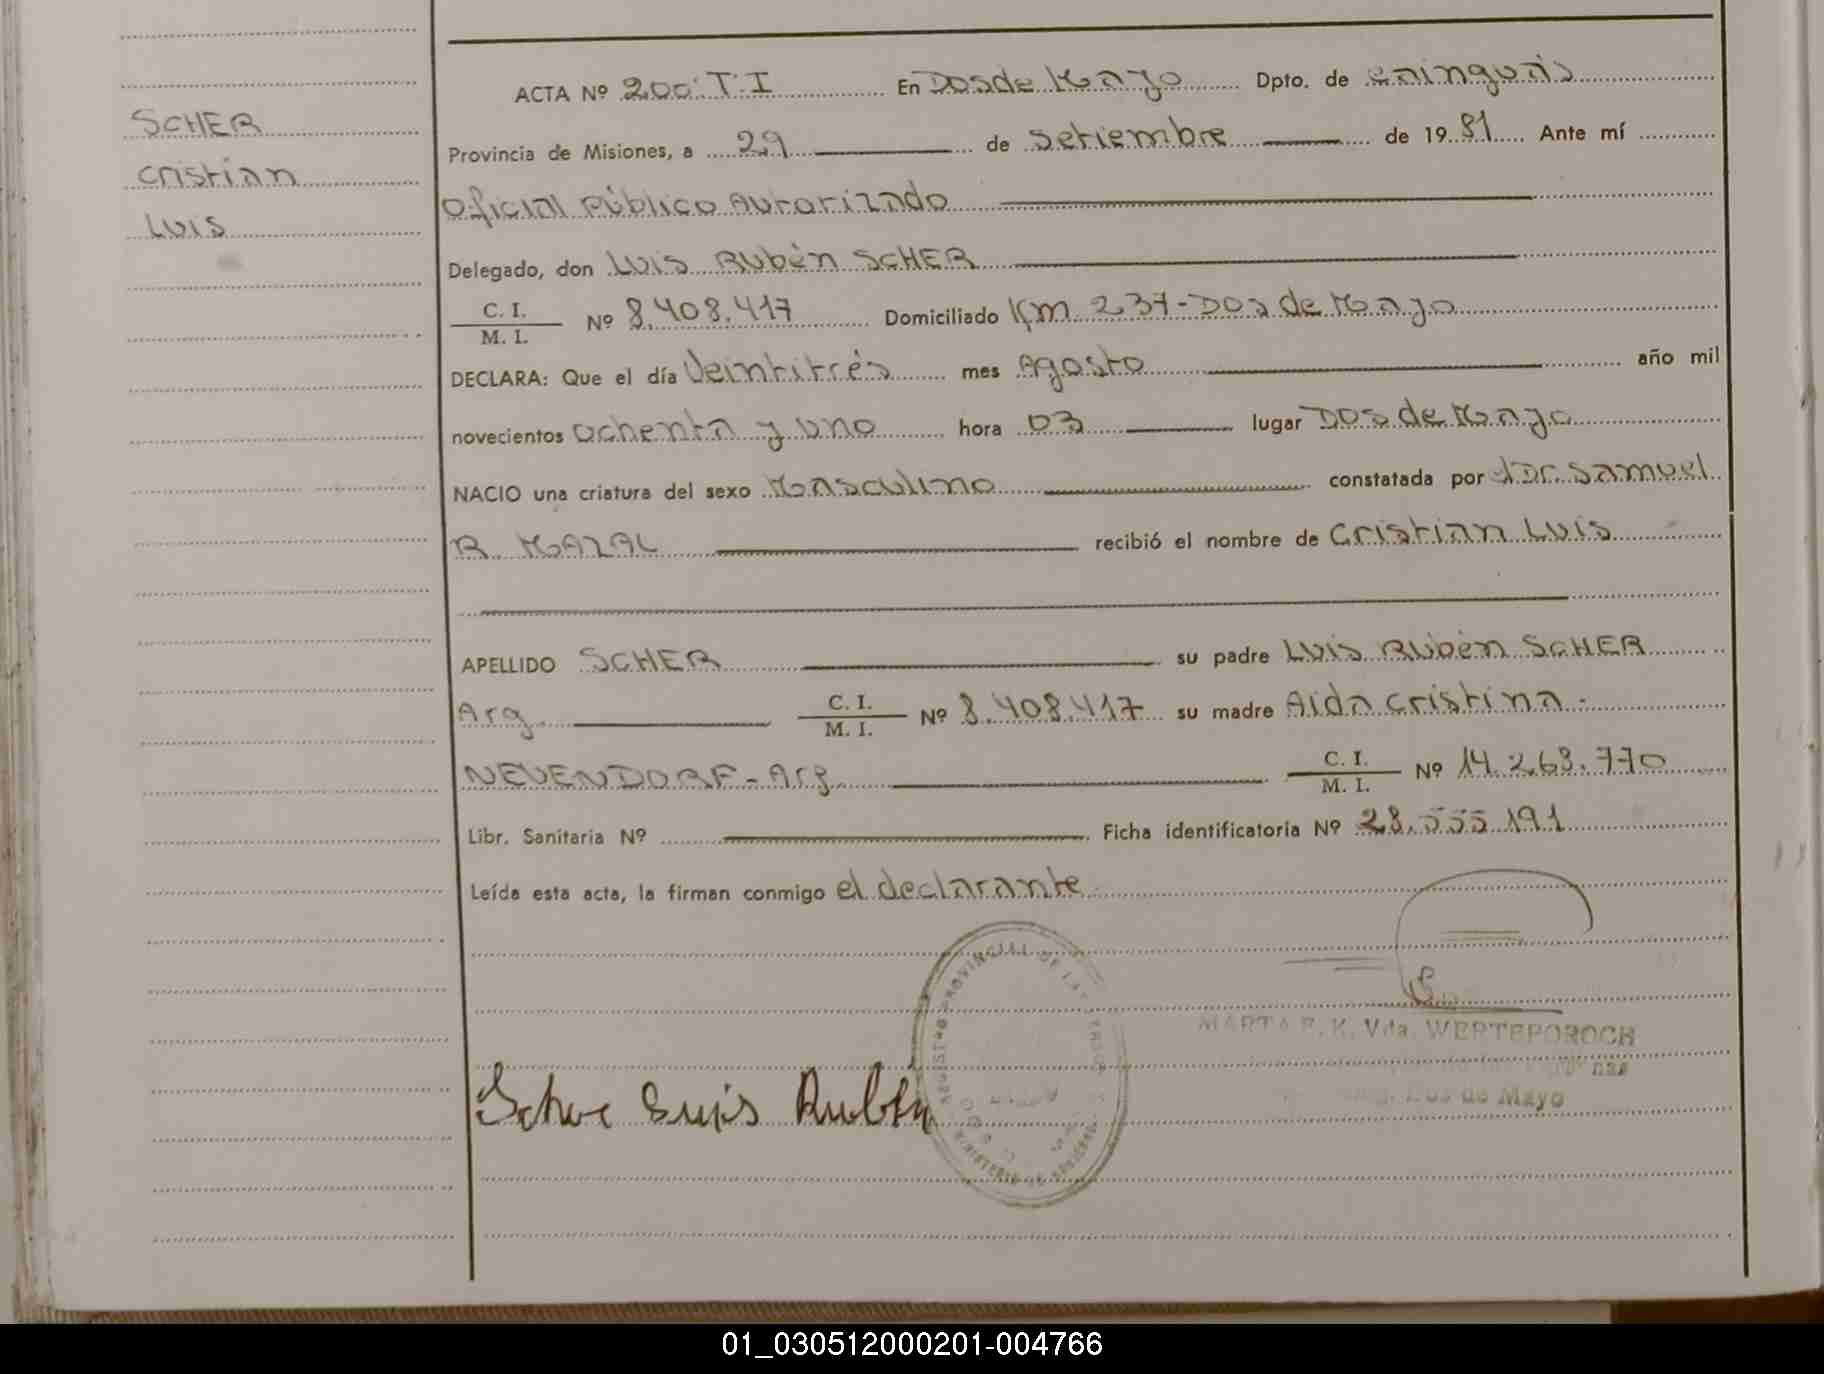 SCHER
Cristian
Luis
ACTA Nº 200: T. I En Dos de Mayo Dpto. de Cainguás
Provincia de Misiones, a 29 de Setiembre de 19 81 Ante mí
Oficial Público Autorizado
Delegado, don Luis Rubén SCHER
C. I. / M. I. Nº 8.408.417 Domiciliado Km 237-Dos de Mayo
DECLARA: Que el día Veintitrés mes Agosto año mil
novecientos ochenta y uno hora 03 lugar Dos de Mayo
NACIO una criatura del sexo Masculino constatada por Dr. Samuel
R. MAZAL recibió el nombre de Cristian Luis
APELLIDO SCHER su padre Luis Rubén SCHER
Arg. C. I. / M. I. Nº 8.408.417 su madre Aida Cristina
NEUENDORF - Arg. C. I. / M. I. Nº 14.263.770
Libr. Sanitaria Nº Ficha identificatoria Nº 28.555.191
Leída esta acta, la firman conmigo el declarante
REGISTRO PROVINCIAL DE LAS PERSONAS
MINISTERIO DE GOBIERNO
MARTA E. K. Vda. WERTEPOROCH
Dos de Mayo
Scher Luis Rubén
01_030512000201-004766